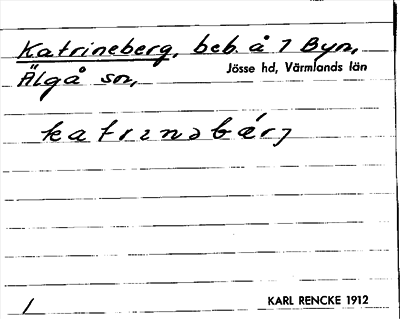 Katrineberg, beb. å 7 Byn,
Älgå sn,
Jösse hd, Värmlands län
katrinəbærj
/
KARL RENCKE 1912